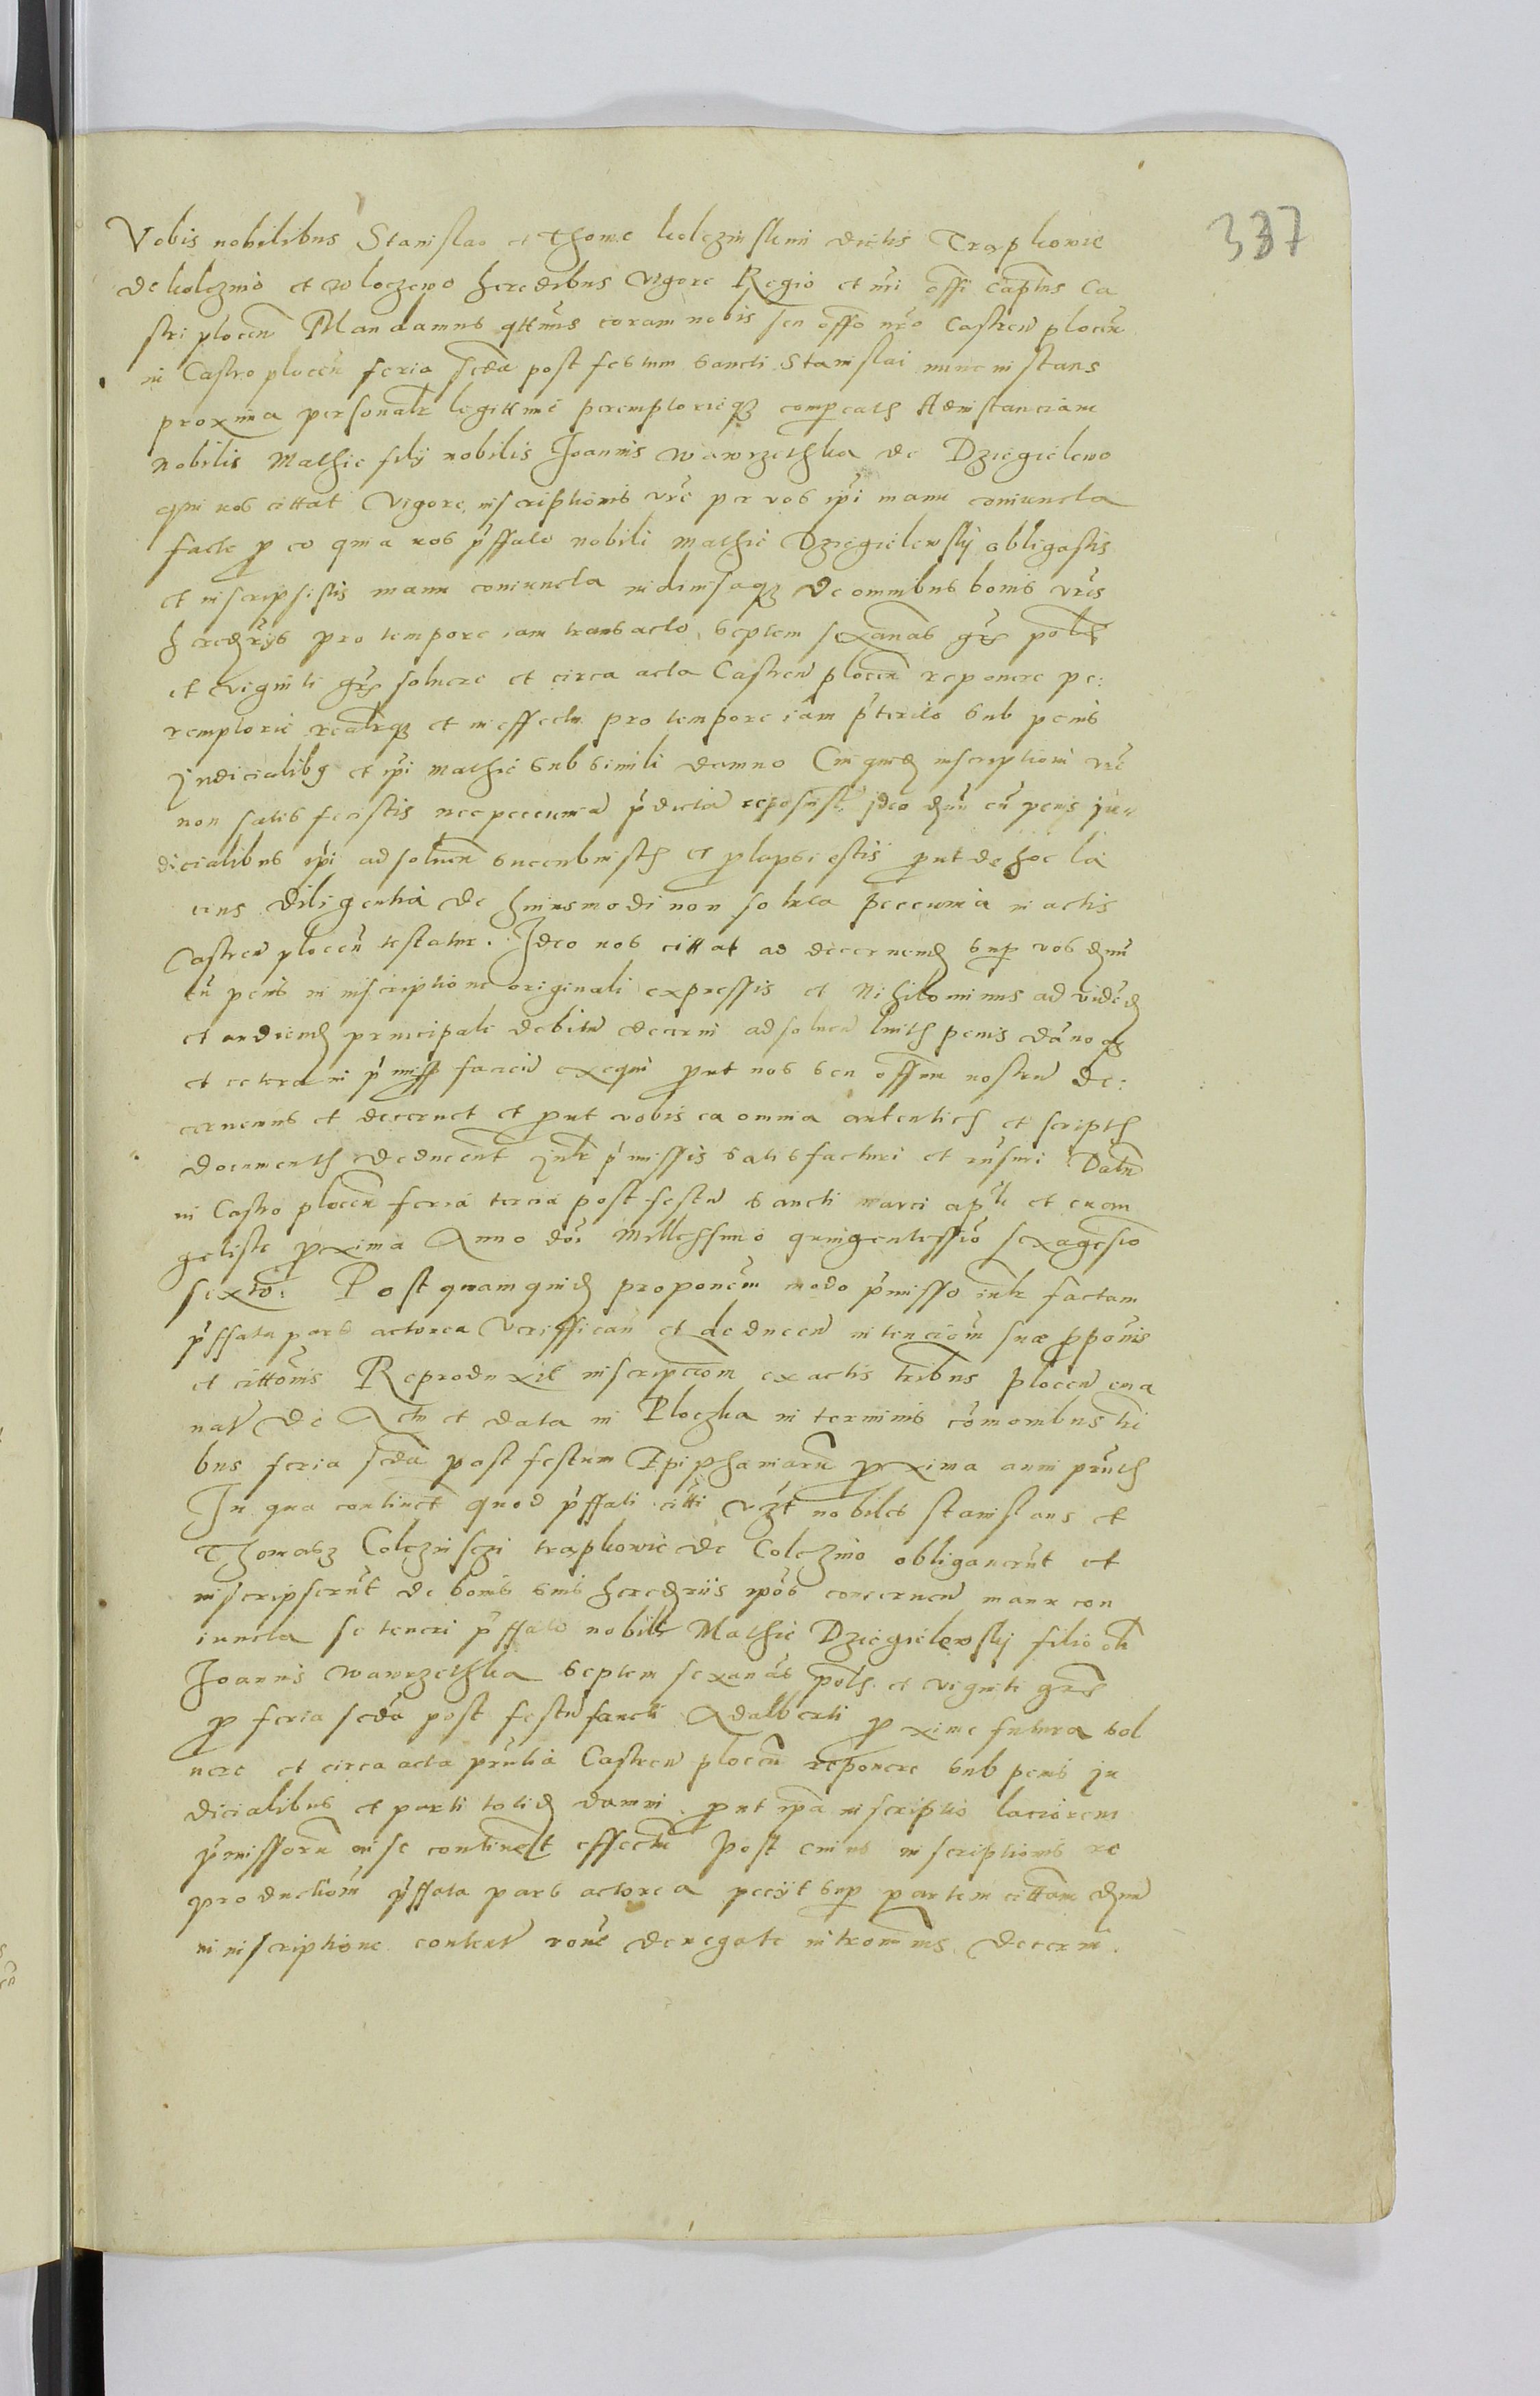 337
Vobis nobilibus Stanislao et Thome kolczinskim dictis Trapkowie
de kolczino et wloczewo heredibus vigore Regio et nri offi Captus Ca
stri plocen Mandamus qttnus coram nobis seu offo nro Castren plocen
in Castro plocen feria scda post festum Sancti Stanislai nunc instans
proxima personalr legittime peremptorieqz compeatis Ad instanciam
nobilis Mathie filij nobilis Joannis wawrzethka de Dziegielewo
qui vos cittat vigore inscriptionis vre per vos ipi manu coniuncta
facte p eo quia vos pffato nobili Mathie Dziegielewskij obligastis
et inscripsistis manu coniuncta indiuisaqz de omnibus bonis vris
heredrijs pro tempore iam transacto septem sexanas grs polis
et viginti grs soluere et circa acta Castren plocen reponere pe:
remptorie realrqz et in effectu pro tempore iam pterito sub penis
Judicialibq et ipi Mathie sub simili damno Cui quid inscriptioni vre
non satis fecistis nec peccunia pdicta reposuist ideo dnu cu penis Ju-
dicialibus ipi ad soluen succubuistis et plapsi estis put de hoc la
cius diligentia de huiusmodi non soluta peccunia in actis
Castren plocen testatur. Ideo vos cittat ad decernend sup vos dnu
cu penis in inscriptione originali expressis et Nihilominus ad vided
et audiend principale debitu decerni ad soluen luitis penis danoqz
et cetera in pmiss facien exequi put nos seu offm nostru de:
cernemus et decernet et put vobis ea omnia autenticis et scriptis
documentis deducent Jntr pmissis satisfacturi et rnsuri Datu
in Castro plocen feria tercia post festu Sancti Marci apli et euan
geliste pxima Anno doi Millessimo quingentessio sexagesio
sexto: Post quam quid proponem modo pmisso intr factam
pffata pars actorea veriffican et deducen intenciom sue pponis
et cittonis Reproduxit inscripciom ex actis tribus plocen ema
nat de Actu et data in Ploczka in terminis comonibus tri
bus feria scda post festum Epiphaniaru pxima anni prntis
In qua continet quod pffati citti vzt nobiles Stanislaus et
Thomasz Colczinsczi trapkowie de Colczino obligauerut et
inscripserut de bonis suis heredriis ipos concernen manu con
iuncta se teneri pffato nobili Mathie Dziegielewskij filio oli
Joannis wawrzethka septem sexanas polis et viginti grs
p feria scda post festu sancti Adalberti p xime futura sol
uere et circa acta prntia Castren plocen reponere sub penis ju
dicialibus et parti totid damni put ipa inscriptio laciorem
pmissoru in se continet effectu Post cuius inscriptionis re
productiom pffata pars actorea pecijt sup partem cittam dnu
in inscriptione content rone denegate intromnis decerni.